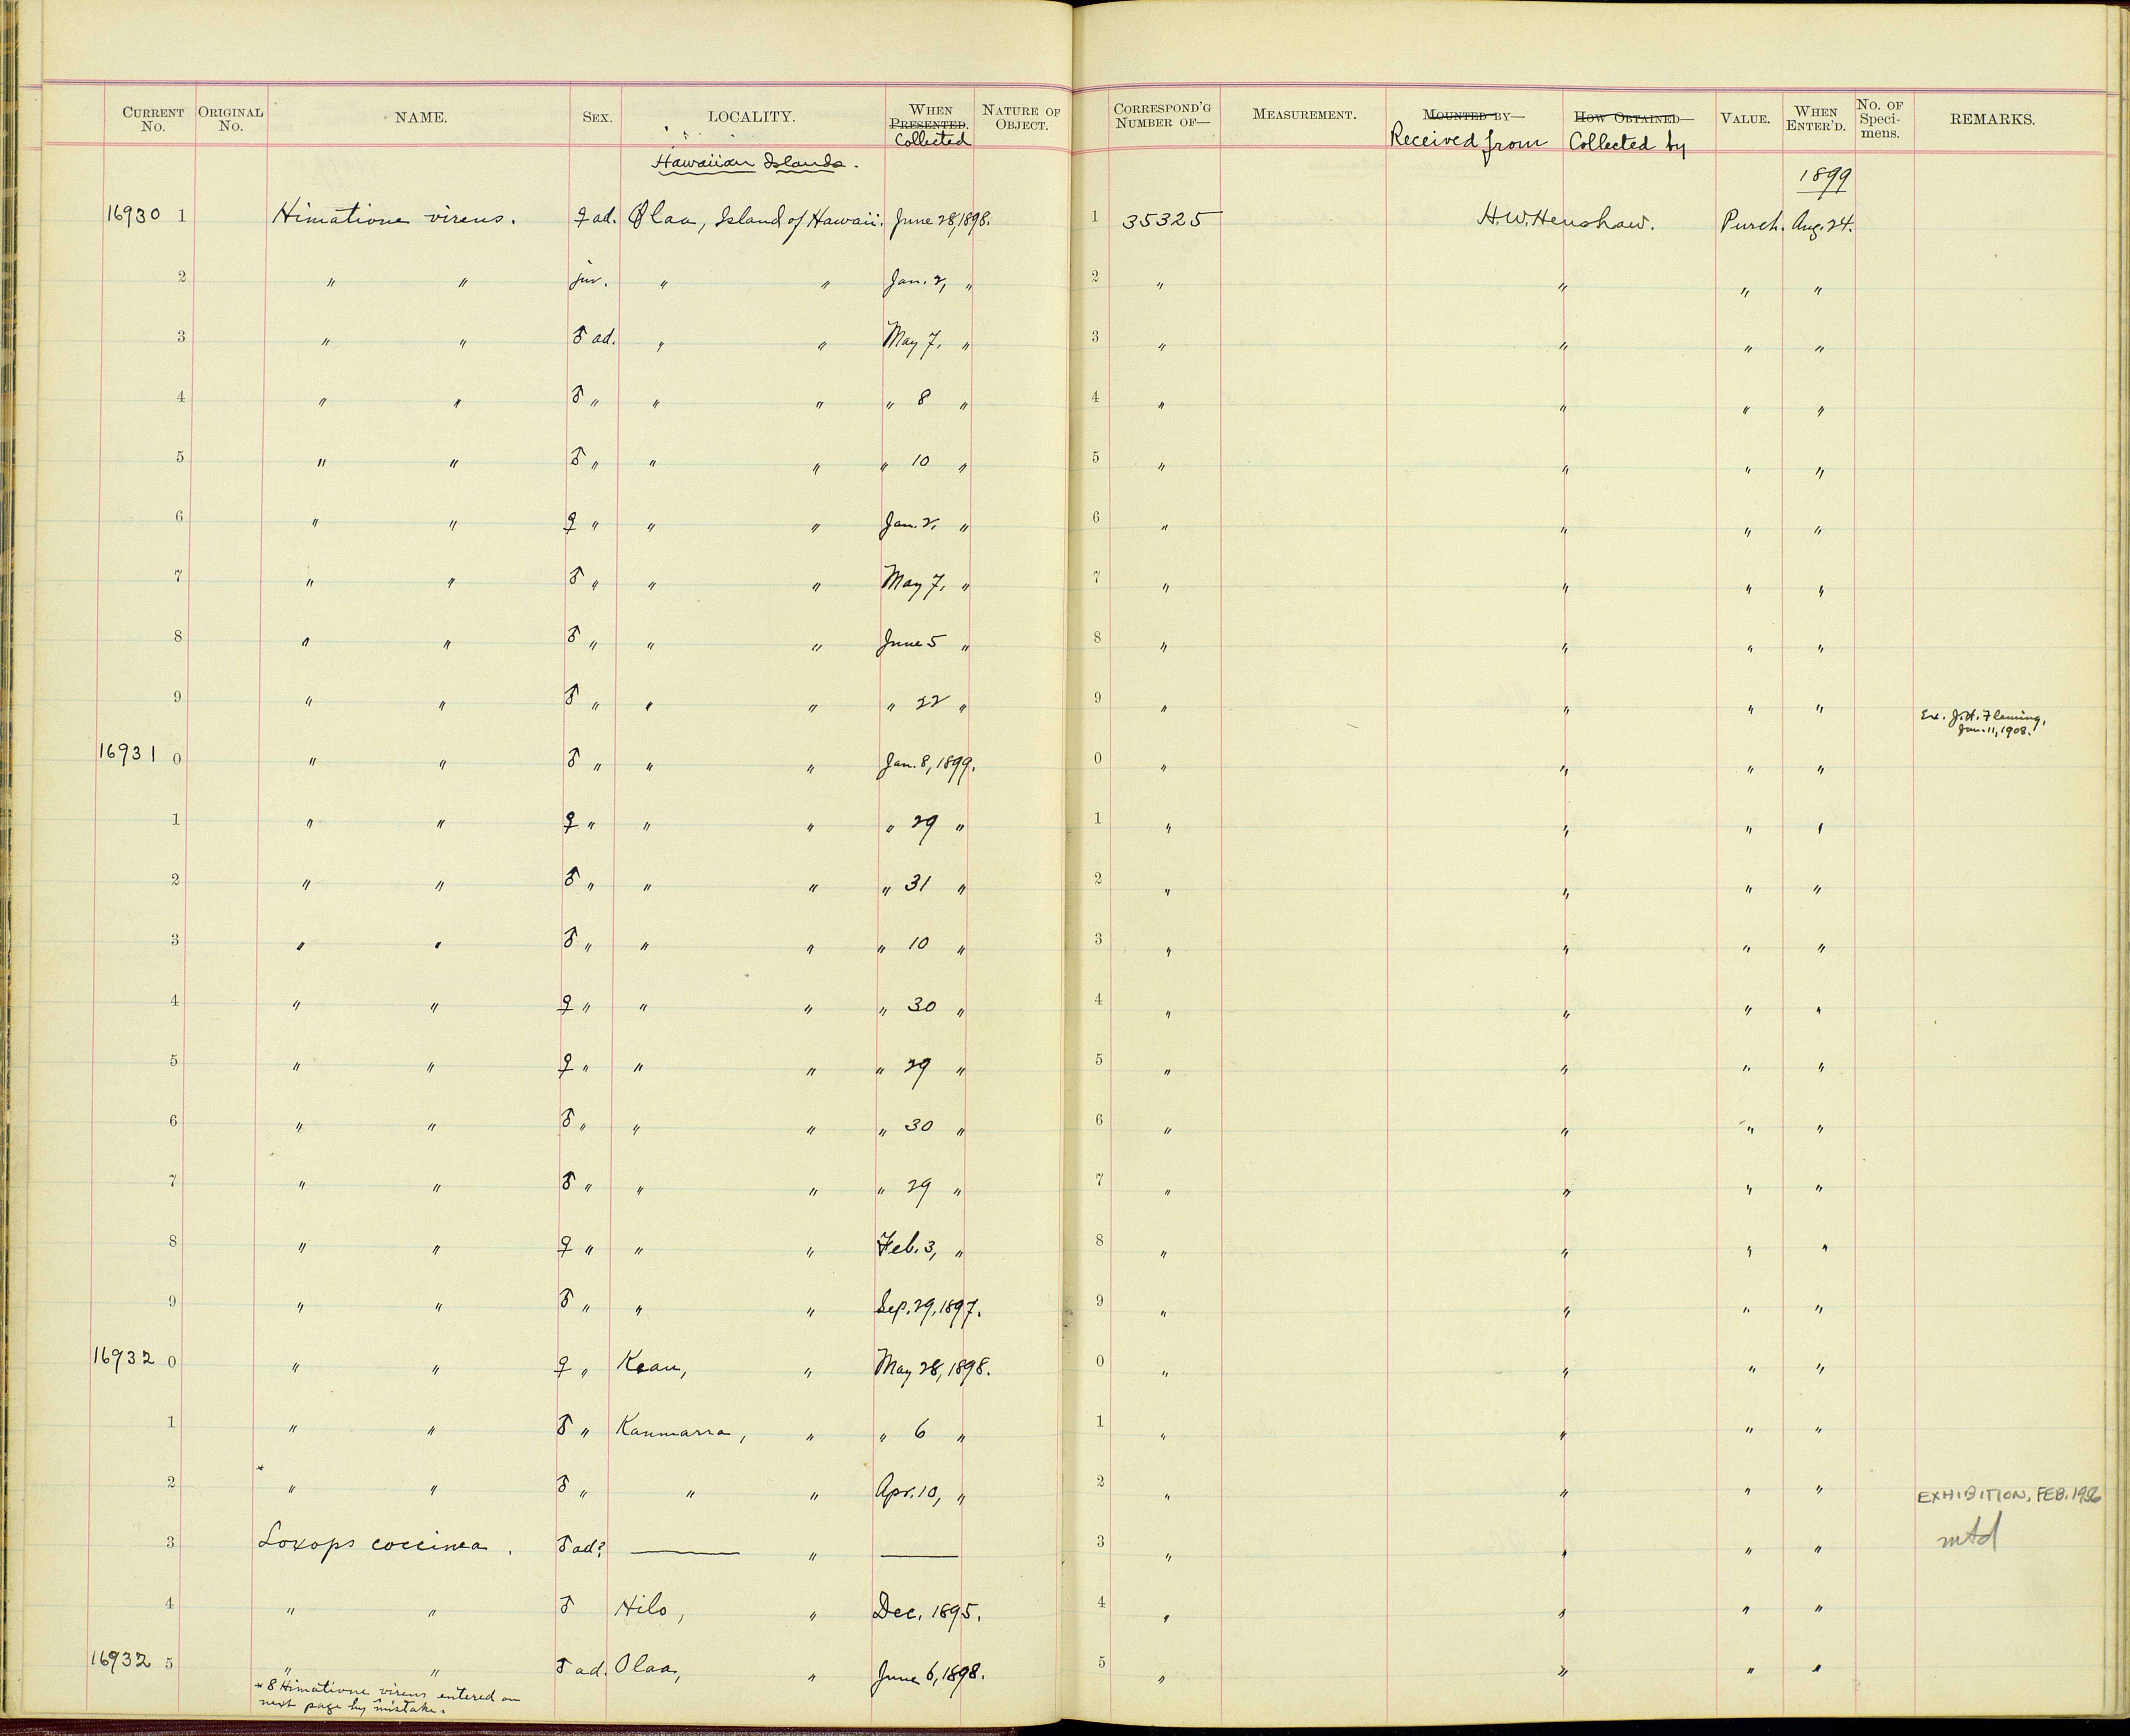 CURRENT No. ORIGINAL No. NAME. SEX. LOCALITY. WHEN PRESENTED. Collected NATURE OF OBJECT. CORRESPOND'G NUMBER OF— MEASUREMENT. MOUNTED BY— Received from HOW OBTAINED— Collected by VALUE. WHEN ENTER'D. No. OF Speci-mens. REMARKS.
Hawaiian Islands.
1899
16930 1 Himatione virens. ♀ ad. Olaa, Island of Hawaii. June 28, 1898. 1 35325 H.W. Henshaw. Purch. Aug. 24.
2 " " juv. " " Jan. 2, " 2 " " " "
3 " " ♂ ad. " " May 7, " 3 " " " "
4 " " ♂ " " " " 8 " 4 " " " "
5 " " ♂ " " " " 10 " 5 " " " "
6 " " ♀ " " " Jan. 2, " 6 " " " "
7 " " ♂ " " " May 7, " 7 " " " "
8 " " ♂ " " " June 5 " 8 " " " "
9 " " ♂ " " " " 22 " 9 " " " " Ex. J.H. Fleming,
Jan. 11, 1908.
16931 0 " " ♂ " " " Jan. 8, 1899. 0 " " " "
1 " " ♀ " " " " 29 " 1 " " " "
2 " " ♂ " " " " 31 " 2 " " " "
3 " " ♂ " " " " 10 " 3 " " " "
4 " " ♀ " " " " 30 " 4 " " " "
5 " " ♀ " " " " 29 " 5 " " " "
6 " " ♂ " " " " 30 " 6 " " " "
7 " " ♂ " " " " 29 " 7 " " " "
8 " " ♀ " " " Feb. 3, " 8 " " " "
9 " " ♂ " " " Sep. 29, 1897. 9 " " " "
16932 0 " " ♀ " Keau, " May 28, 1898. 0 " " " "
1 " " ♂ " Kaumarra, " " 6 " 1 " " " "
2 * " " ♂ " " " Apr. 10, " 2 " " " " EXHIBITION, FEB. 1956
3 Loxops coccinea. ♂ ad? — " — 3 " " " " mtd
4 " " ♂ Hilo, " Dec. 1895. 4 " " " "
16932 5 " " ♂ ad. Olaa, " June 6, 1898. 5 " " " "
* 8 Himatione virens entered on
next page by mistake.